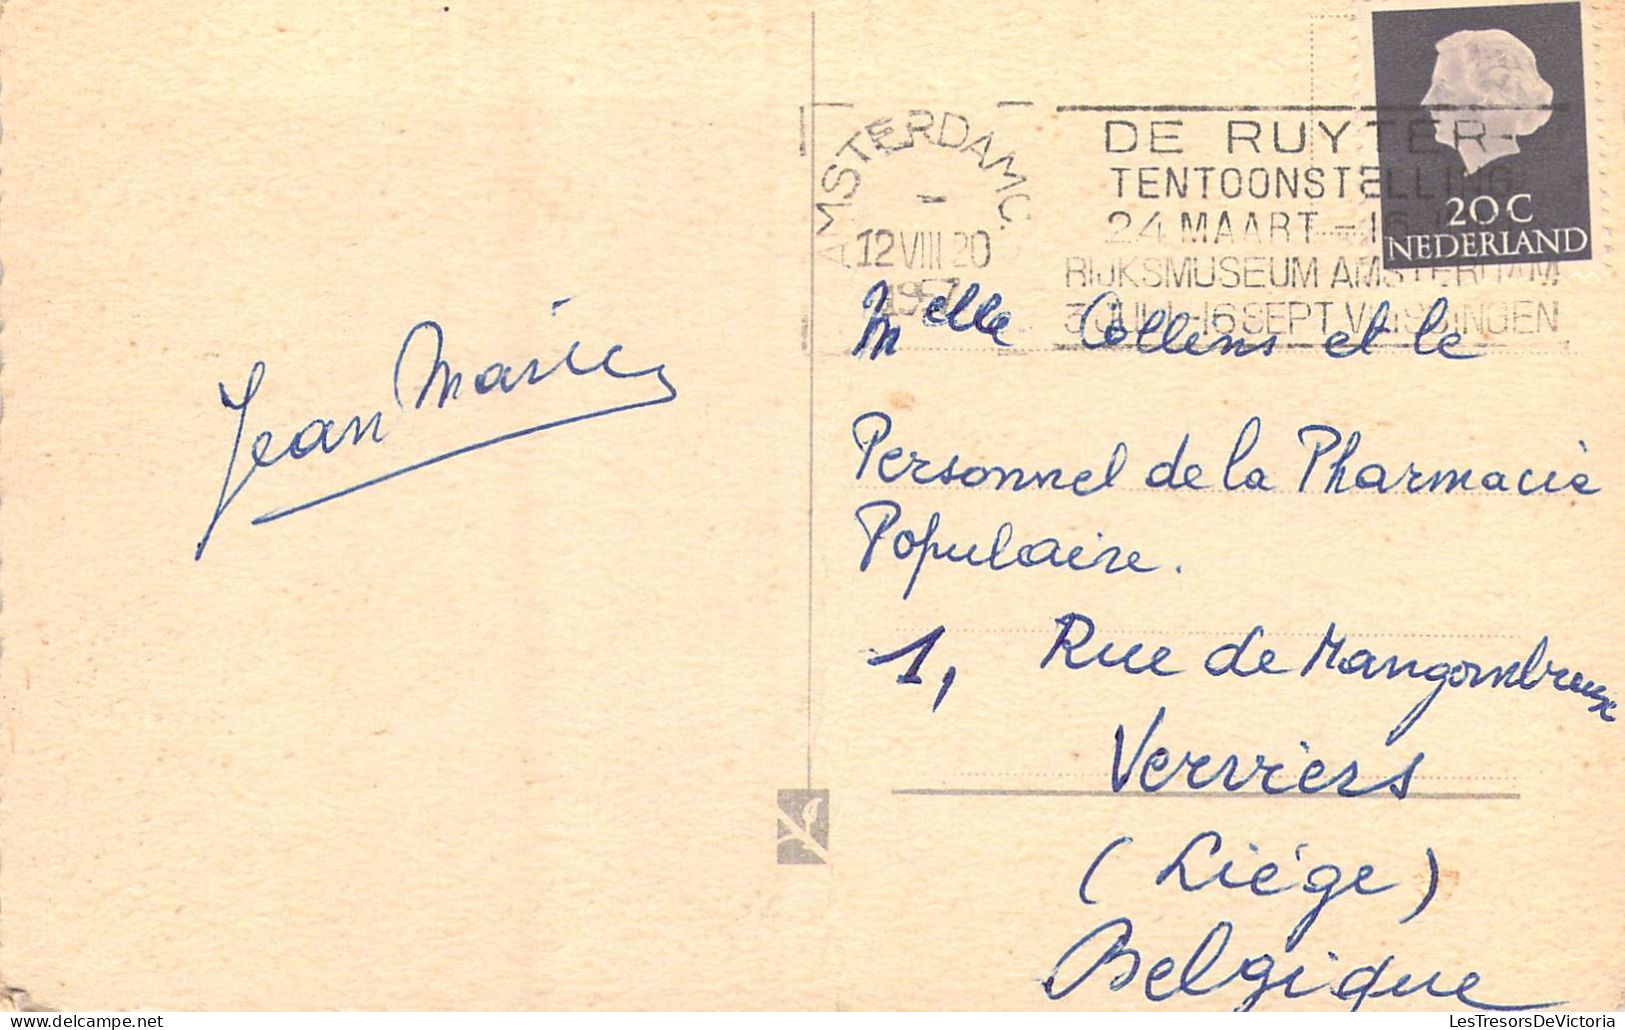 Jean Marie
AMSTERDAM C.
12 VIII 20
1957
DE RUYTER-
TENTOONSTELLING
24 MAART - 16
RIJKSMUSEUM AMSTERDAM
3 JULI-16 SEPT VLISSINGEN
20 C
NEDERLAND
Melle Collens et le
Personnel de la Pharmacie
Populaire.
1, Rue de Mangombreux
Verviers
(Liége)
Belgique
LesTresorsDeVictoria